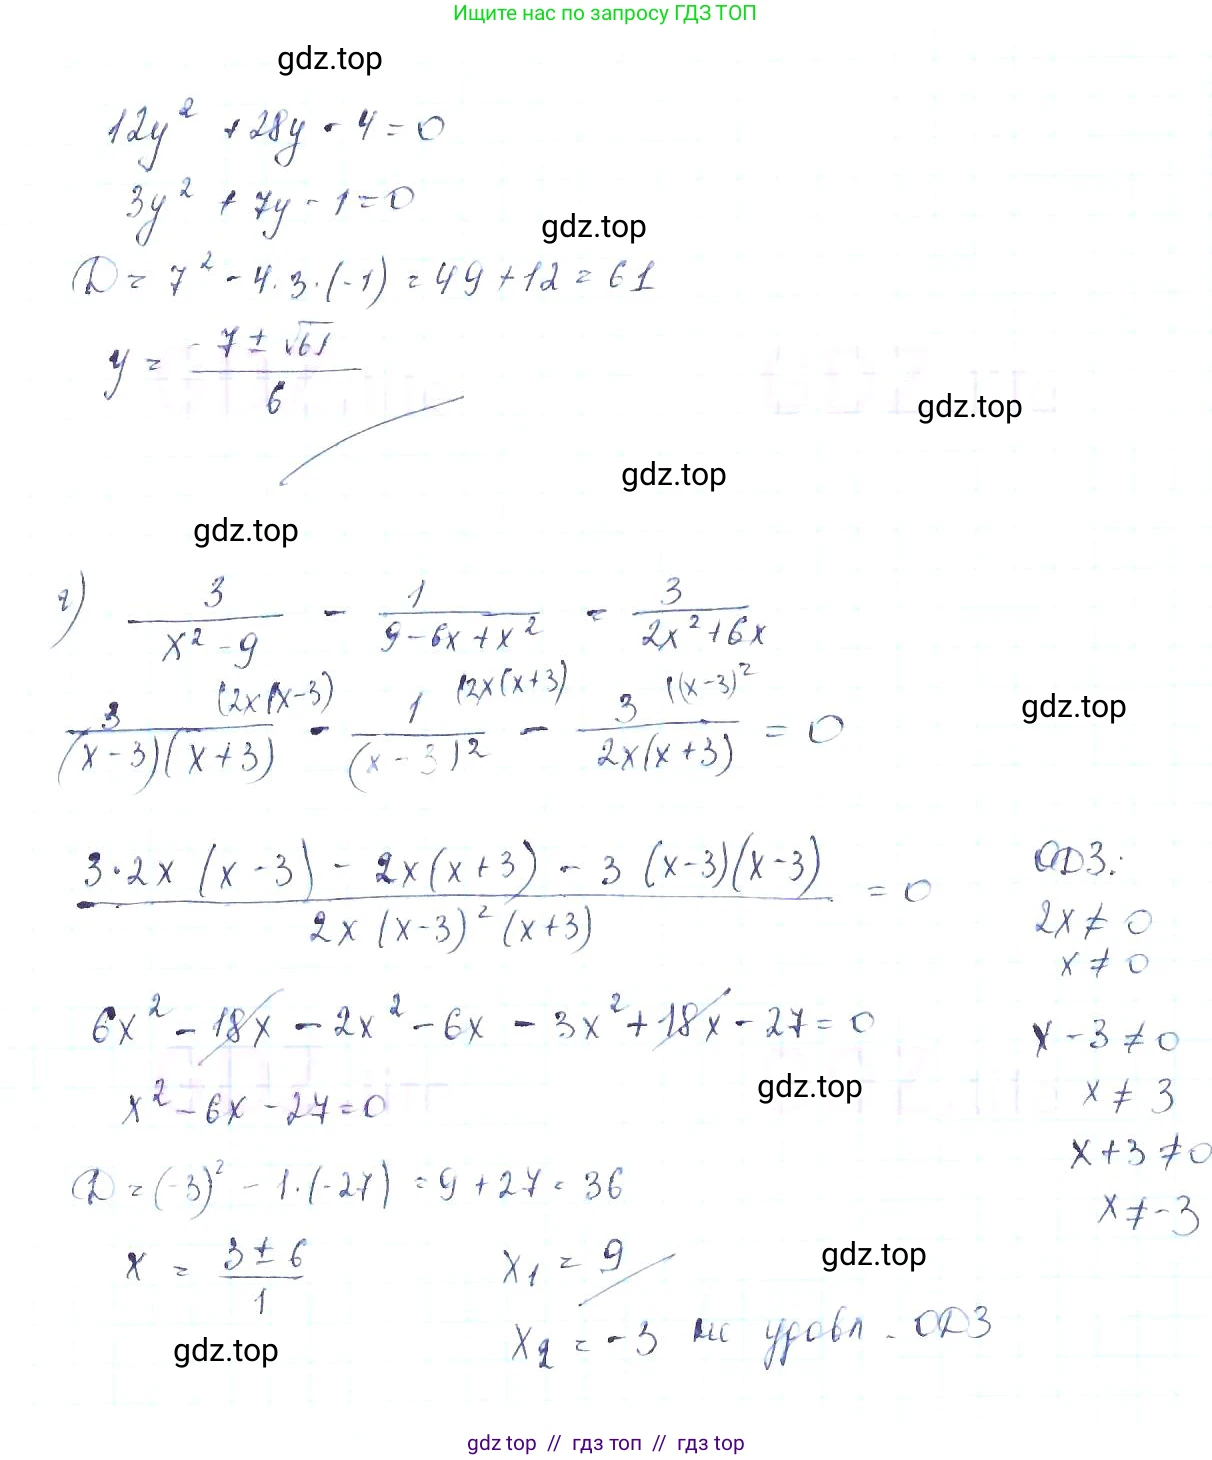 Ищите нас по запросу ГДЗ ТОП
gdz.top
12y² + 28y - 4 = 0
3y² + 7y - 1 = 0
gdz.top
D = 7² - 4·3·(-1) = 49 + 12 = 61
y = (-7 ± √61) / 6
gdz.top
gdz.top
gdz.top
г) 3/(x² - 9) - 1/(9 - 6x + x²) = 3/(2x² + 6x)
3/((x-3)(x+3)) (2x(x-3) - 1/(x-3)² (2x(x+3) - 3/(2x(x+3)) ((x-3)² = 0
gdz.top
(3·2x(x-3) - 2x(x+3) - 3(x-3)(x-3)) / (2x(x-3)²(x+3)) = 0
ОДЗ:
2x ≠ 0
x ≠ 0
6x² - 18x - 2x² - 6x - 3x² + 18x - 27 = 0
x - 3 ≠ 0
gdz.top
x² - 6x - 27 = 0
x ≠ 3
x + 3 ≠ 0
D = (-3)² - 1·(-27) = 9 + 27 = 36
x ≠ -3
x = (3 ± 6) / 1
x₁ = 9
gdz.top
x₂ = -3 не удовл. ОДЗ
gdz.top
gdz top // гдз топ // гдз top